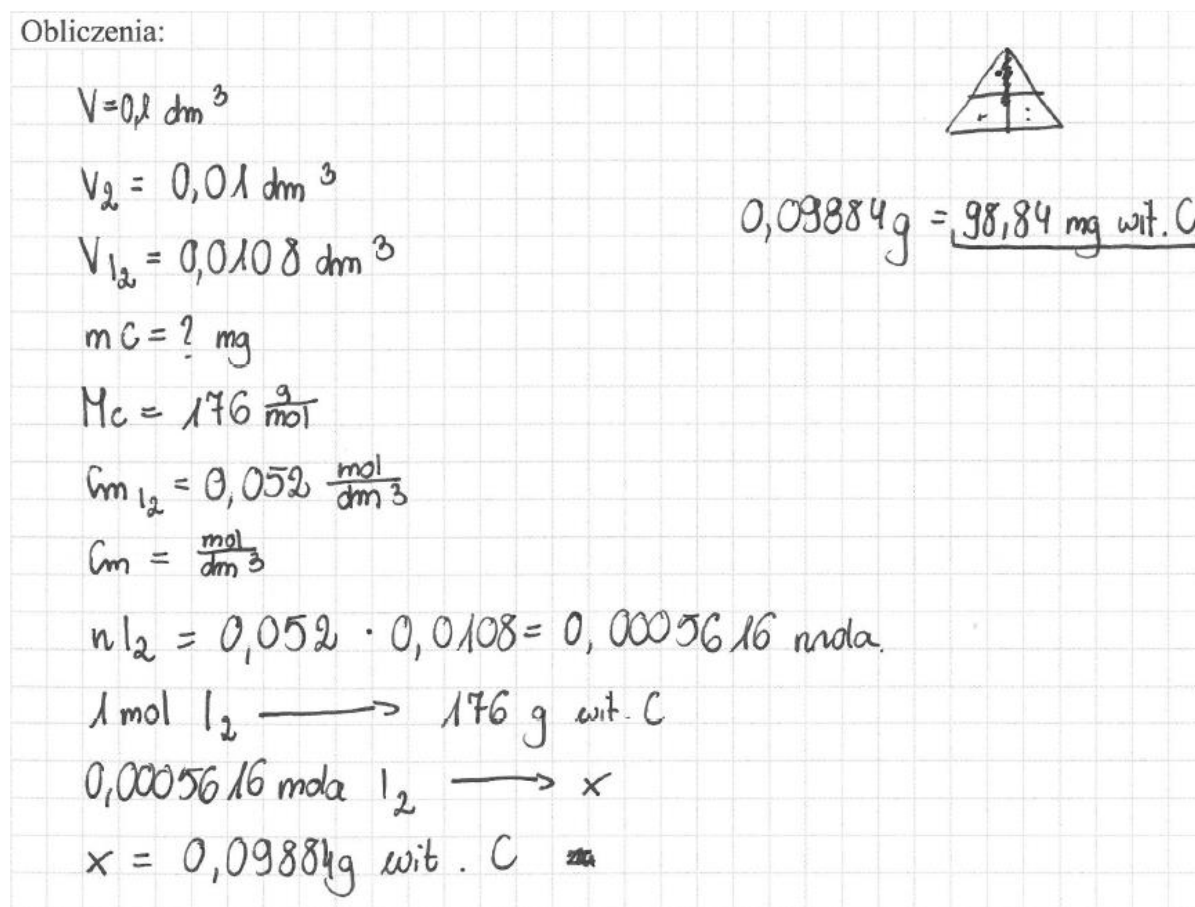 Obliczenia:
V=0,1 dm³
V₂ = 0,01 dm³
V I₂ = 0,0108 dm³
mC = ? mg
Mc = 176 g/mol
Cm I₂ = 0,052 mol/dm³
Cm = mol/dm³
nI₂ = 0,052 · 0,0108 = 0,0005616 mola.
1 mol I₂ ⟶ 176 g wit. C
0,0005616 mola I₂ ⟶ x
x = 0,09884g wit. C
0,09884g = 98,84 mg wit. C